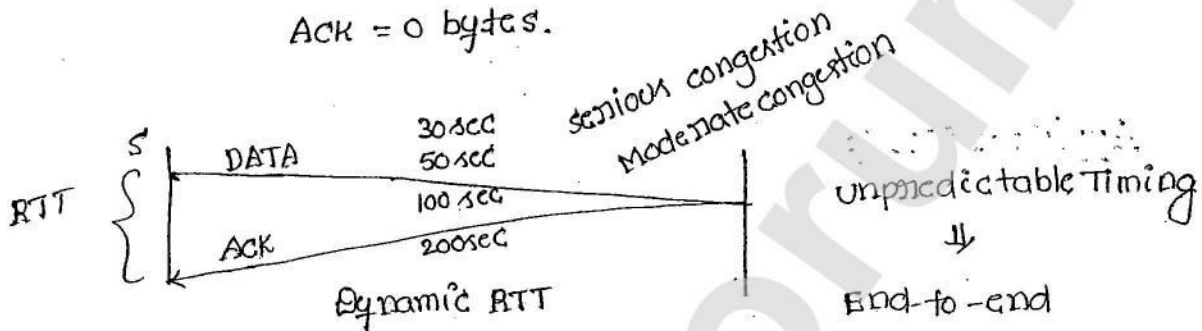 ACK = 0 bytes.
serious congestion
Moderate congestion
S
DATA
30 sec
50 sec
100 sec
200sec
RTT
ACK
Dynamic RTT
unpredictable Timing
⇓
End-to-end